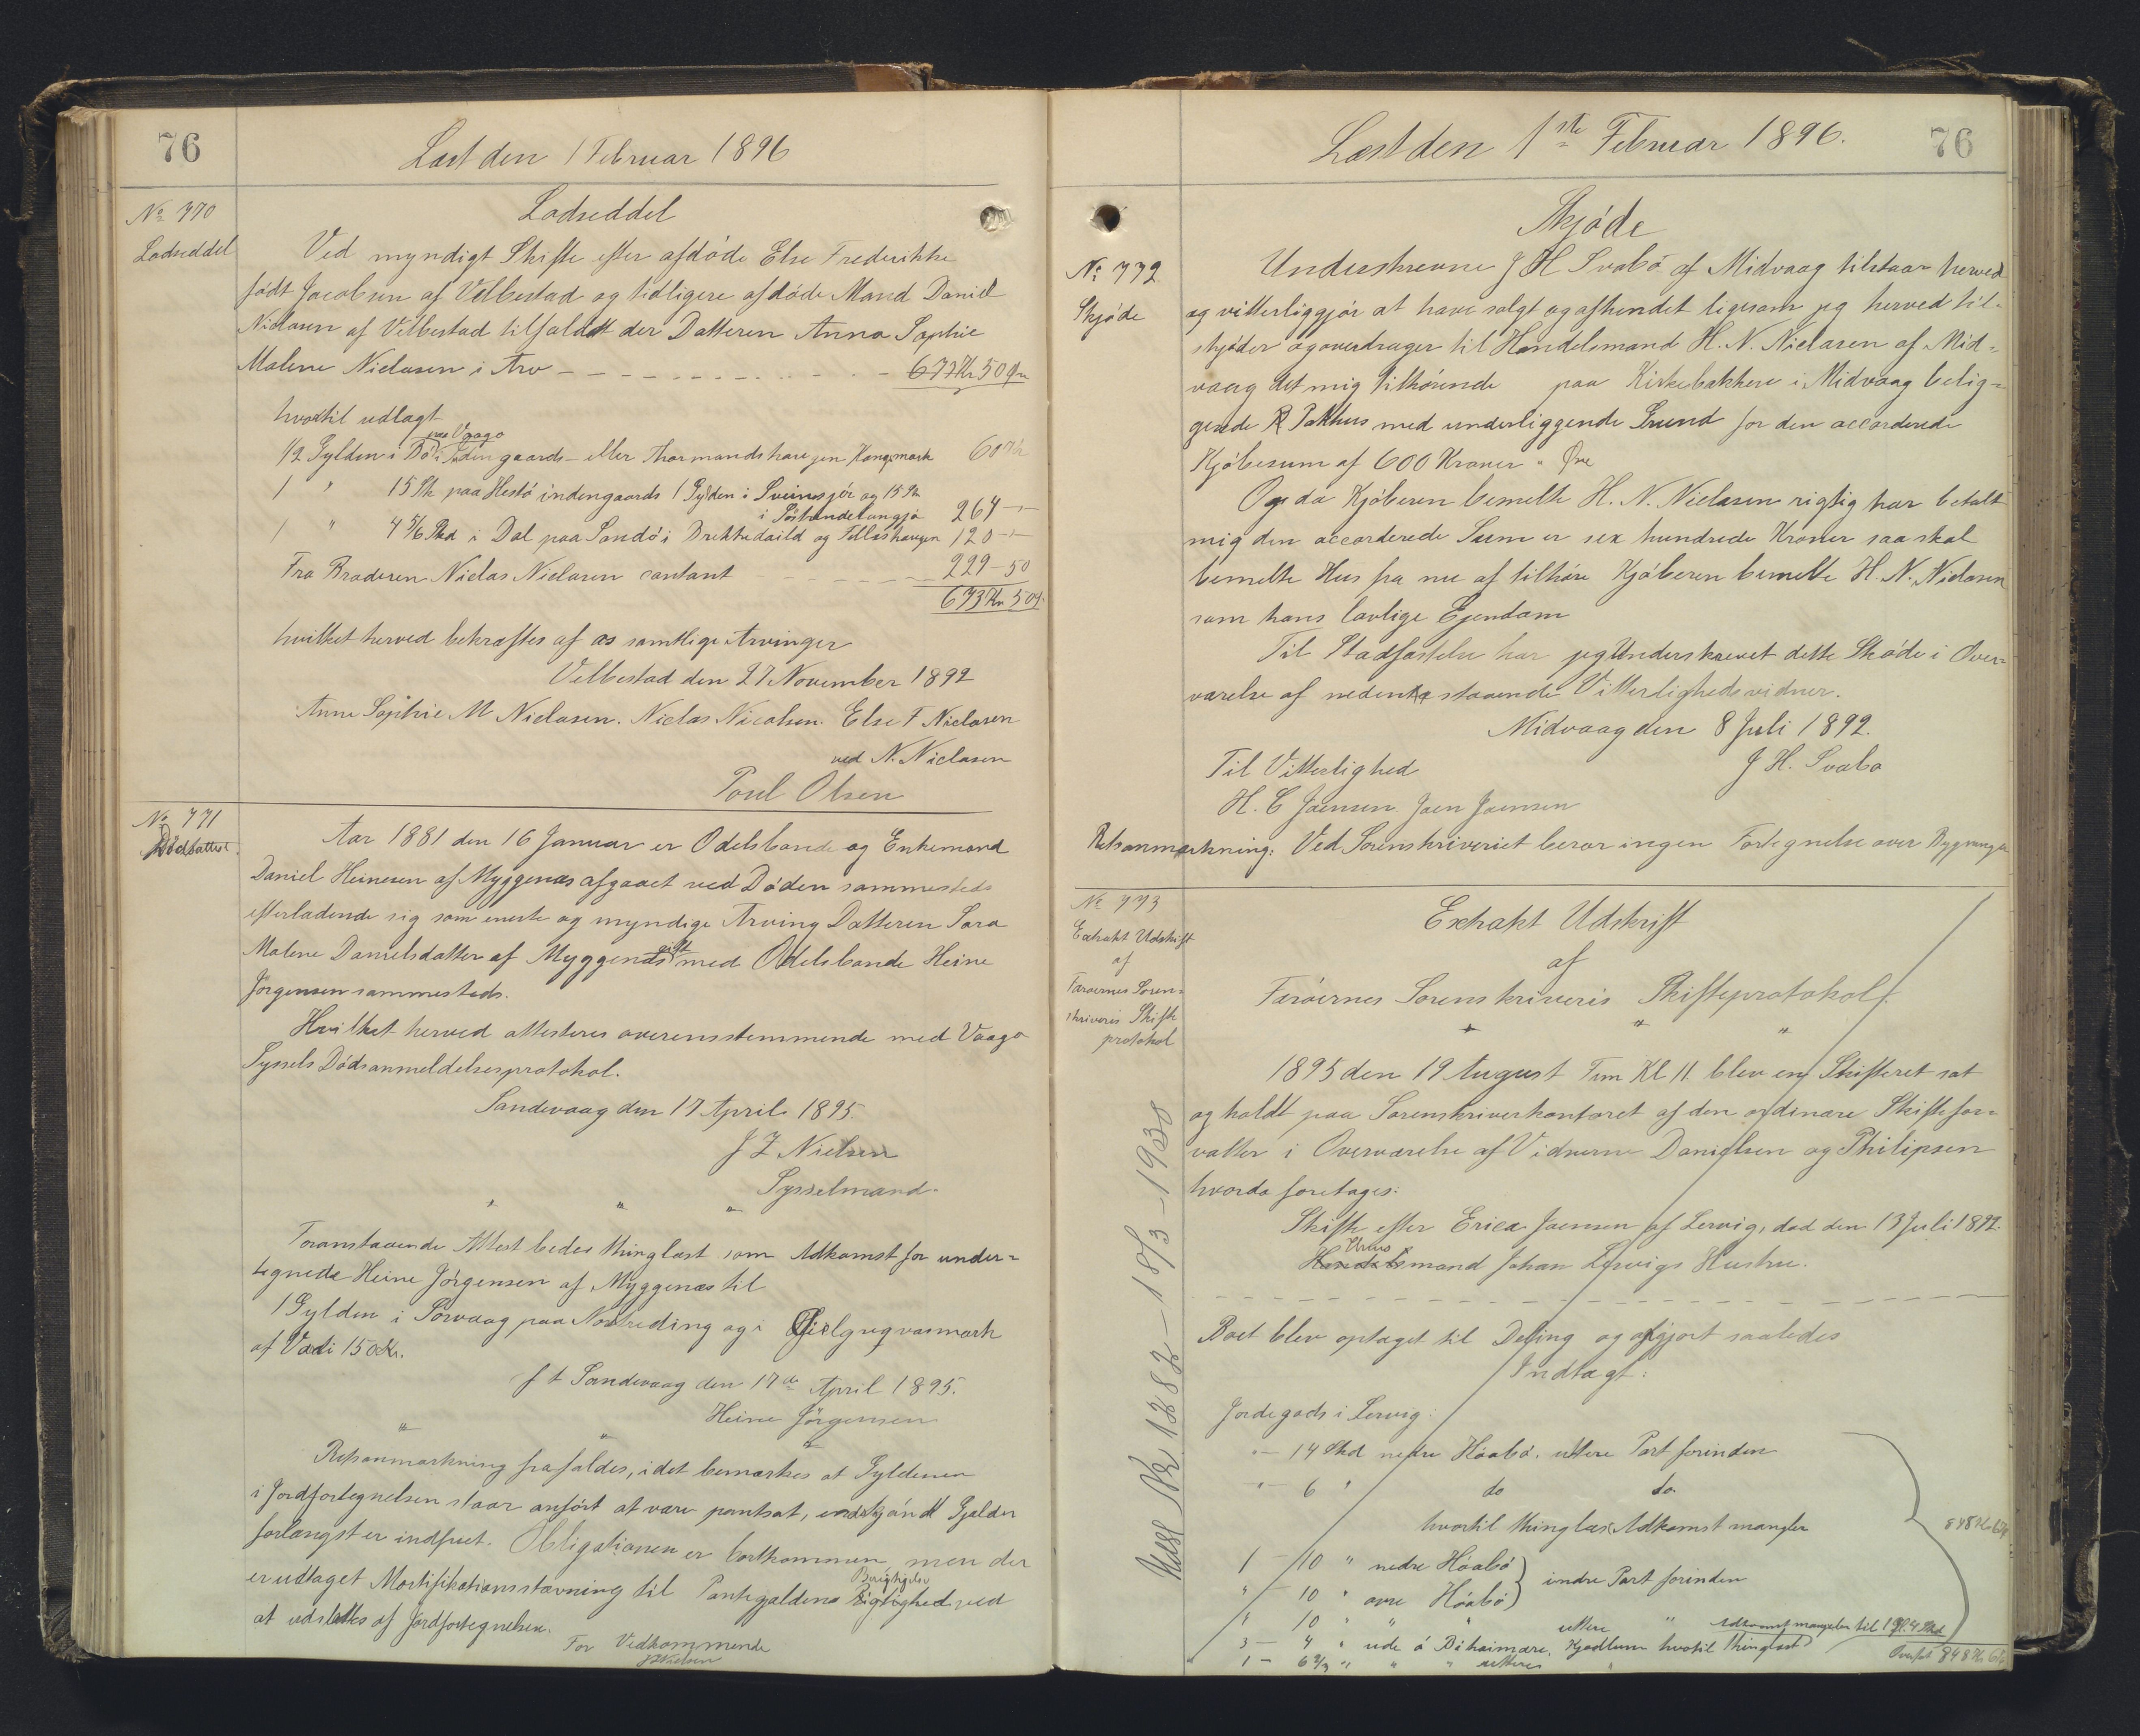 76
Læst den 1 Februar 1896
No 770
Lodseddel
Lodseddel
Ved myndigt Skifte efter afdøde Else Frederikke
født Jacobsen af Velbestad og tidligere afdøde Mand Daniel
Niclasen af Velbestad tilfaldt der Datteren Anna Sophie
Malene Niclasen i Arv 673 Kr 50 Øre
hvortil udlagt
paa Vaagø
1/2 Gylden i Bø i gaards eller Thormandshauejen Kongsmark 60 Kr
1 " 15 Sk paa Hestø indengaards 1 Gylden i Sveinsjør og 15 Sk
i 264
1 " 4 5/6 Skd i Dal paa Sandø i og 120
Fra Broderen Niclas Niclasen contant 229-50
673 Kr 50 Ø.
hvilket herved bekræftes af os samtlige Arvinger
Velbestad den 27 November 1892
Anne Sophie M Niclasen. Niclas Nicolsen. Else F Niclasen
ved N. Niclasen
Poul Olsen
No 771
Dødsattest.
Aar 1881 den 16 Januar er Odelsbonde og Enkemand
Daniel Heinesen af Myggenæs afgaaet ved Døden sammesteds
efterladende sig som eneste og myndige Arving Datteren Sara
Malene Danielsdatter af Myggenæs gift med Odelsbonde Heine
Jørgensen sammesteds.
Hvilket herved attesteres overensstemmende med Vaagø
Syssels Dødsanmeldelsesprotokol.
Sandevaag den 17 April 1895.
J Z Nielsen
Sysselmand.
" " "
Foranstaaende Attest bedes thinglæst som Adkomst for under=
tegnede Heine Jørgensen af Myggenæs til
1 Gylden i Sørvaag paa Nordreding og i
af Værdi 150 Kr.
f t Sandevaag den 17de April 1895.
Heine Jørgensen
" " "
Retsanmærkning frafaldes, idet bemærkes at Gyldenen
i Jordfortegnelsen staar anført at være pantsat, endskjøndt Gjælden
forlængst er indfriet. Obligationen er bortkommen, men der
er udtaget Mortifikationsstævning til Pantegjældens Rigtighed ved
Berigtigelse
at udslettes af Jordfortegnelsen.
For Vedkommende
JZNielsen
Læst den 1ste Februar 1896.
76
No 772
Skjøde
Skjøde
Underskrevne J H Svabø af Midvaag tilstaar herved
og vitterliggjør at have solgt og afhendet ligesom jeg herved til=
skjøder og overdrager til Handelsmand H. N. Niclasen af Mid=
vaag det mig tilhørende paa Kirkebakkere i Midvaag belig=
gende Pakhus med underliggende Grund for den accorderede
Kjøbesum af 600 Kroner " Øre
Og da Kjøberen bemeldte H. N. Niclasen rigtig har betalt
mig den accorderede Sum er sex hundrede Kroner saa skal
bemeldte Hus fra nu af tilhøre Kjøberen bemeldte H. N. Niclasen
som hans lovlige Ejendom
Til Stadfæstelse har jeg underskrevet dette Skøde i Over=
værelse af nedenstaaende Vitterlighedsvidner.
Midvaag den 8 Juli 1892.
Til Vitterlighed J H. Svabo
H. C Joensen Joen Joensen
Retsanmærkning: Ved Sorenskriveriet beror ingen Fortegnelse over Bygninger
No 773
Extrakt Udskrift
af
Færøernes Soren=
skriveris Skifte
protokol
Extrakt Udskrift
af
Færøernes Sorenskriveris Skifteprotokol.
" " "
1895 den 19 August Fm Kl 11 blev en Skifteret sat
og holdt paa Sorenskriverkontoret af den ordinære Skiftefor=
valter i Overværelse af Vidnerne Danielsen og Philipsen
hvorda foretages:
Skifte efter Erica Joensen af Lervig, død den 13 Juli 1892.
Huus
Handelsmand Johan Lervigs Hustru.
Boet blev optaget til Deling og opgjort saaledes
Indtægt:
Jordegods i Lervig:
" - 14 Skd nedre Høabø, uttere Part forinden
" - 6 " do do
hvortil thinglæst Adkomst mangler
848 Kr 62
1 - 10 " nedre Høabø } indre Part forinden
" - 10 " øvre Høabø
" 10 " " " uttere " Adkomst mangler til 1 Gl. 4 Skd
3 - 4 " ude á hvortil thinglæst
1 - 6 2/3 " " " uttere "
Overført 848 Kr 62
18/3-1938